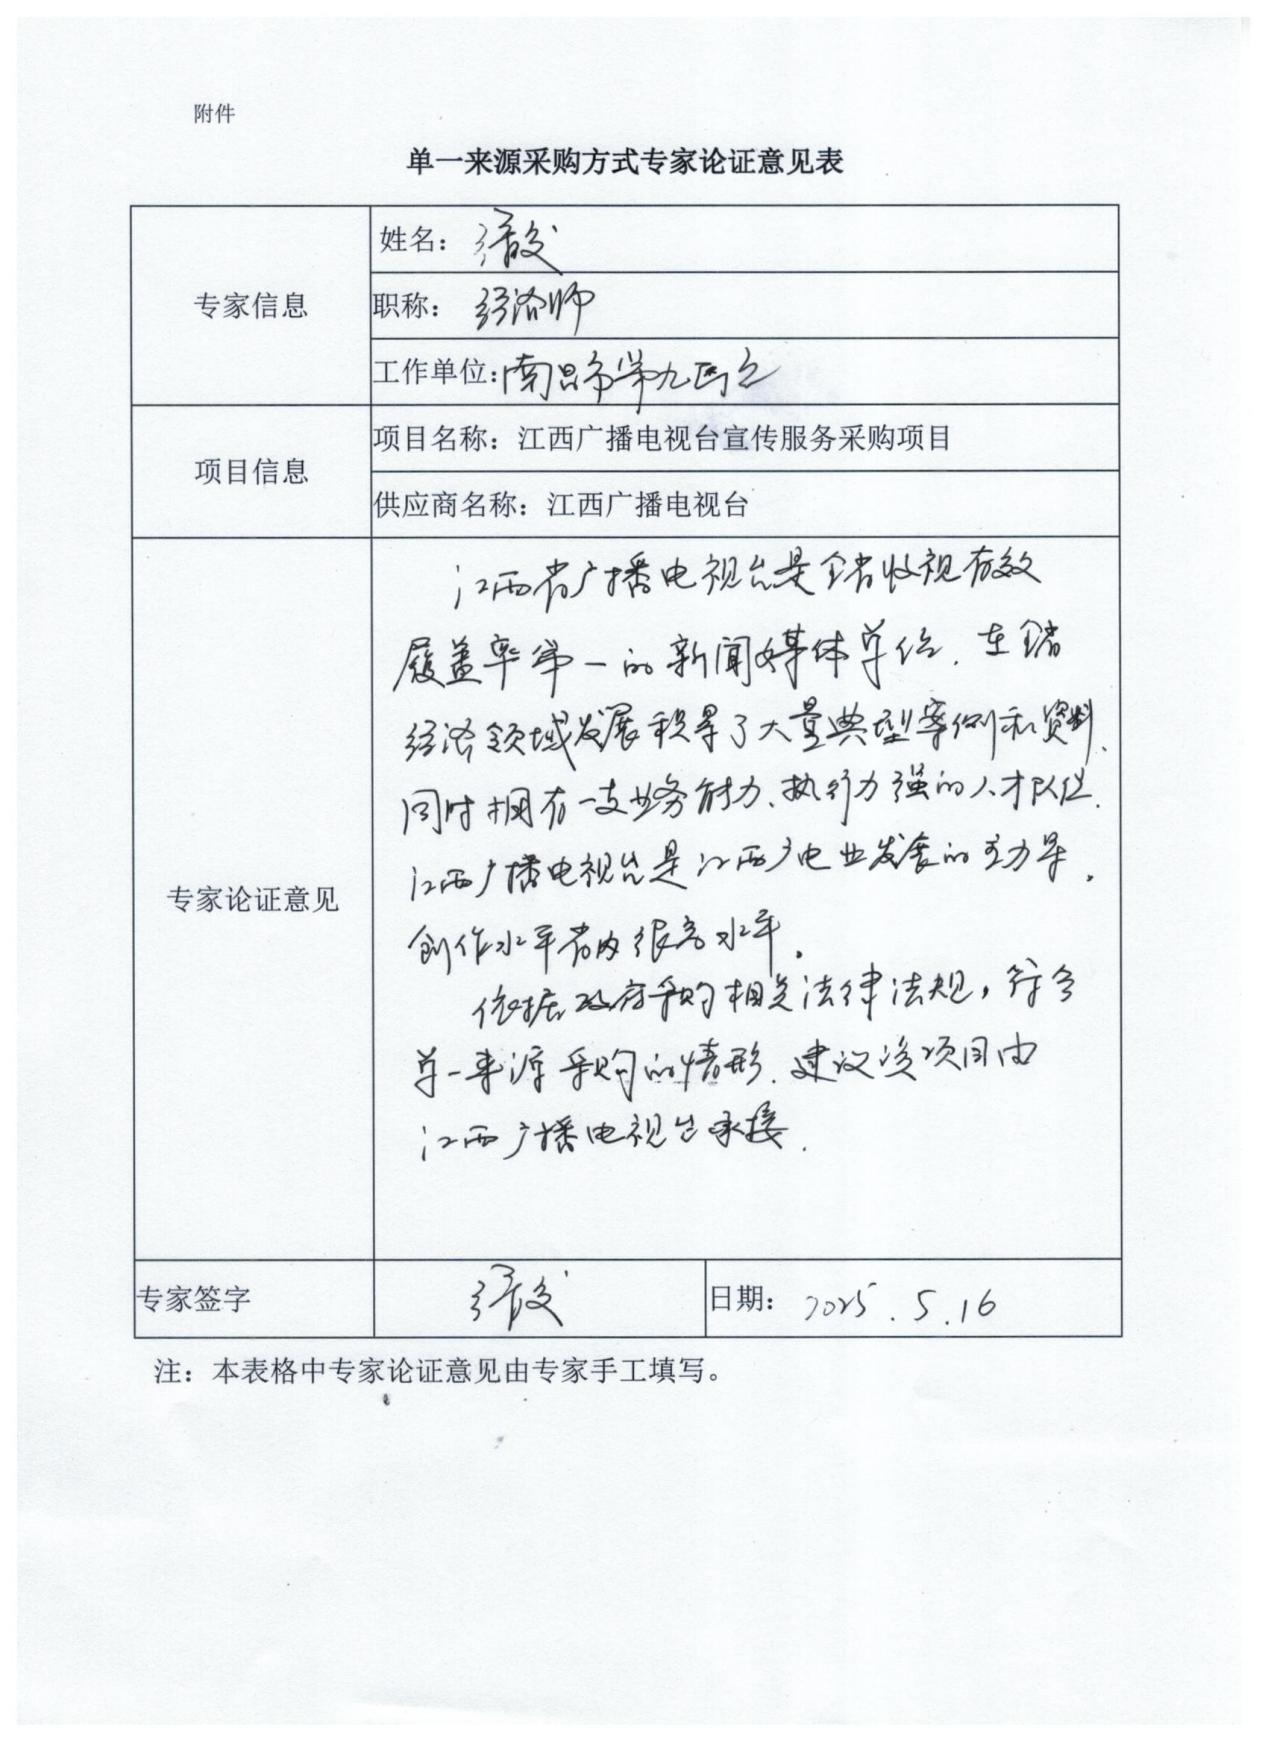 附件
单一来源采购方式专家论证意见表
专家信息
姓名：
职称：经济师
工作单位：南昌市第九医院
项目信息
项目名称：江西广播电视台宣传服务采购项目
供应商名称：江西广播电视台
专家论证意见
江西省广播电视台是全省收视有效
覆盖率第一的新闻媒体单位，在全省
经济领域发展积累了大量典型案例和资料，
同时拥有一支业务能力、执行力强的人才队伍。
江西广播电视台是江西广电业发展的主力军，
创作水平省内很高水平。
依据政府采购相关法律法规，符合
单一来源采购的情形，建议该项目由
江西广播电视台承接。
专家签字
日期：2025.5.16
注：本表格中专家论证意见由专家手工填写。